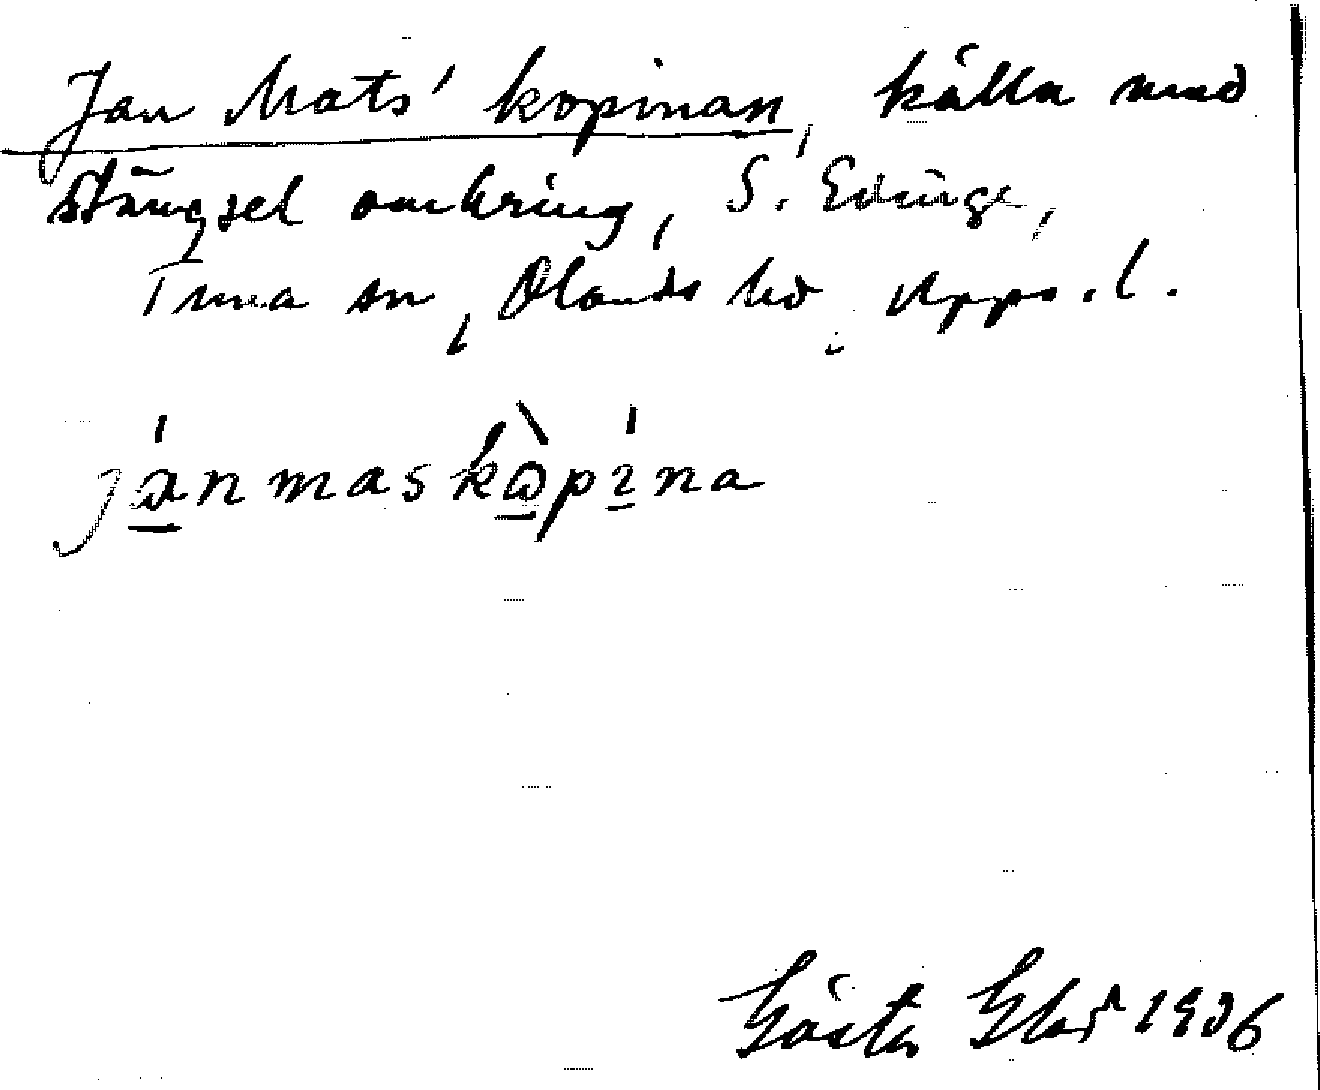 Jan Mats' kopinan, källa med
stängsel omkring, S. Edinge,
Tuna sn, Olands hd, Upps. l.
jánmaskò̱pí̱na
Gösta 1936